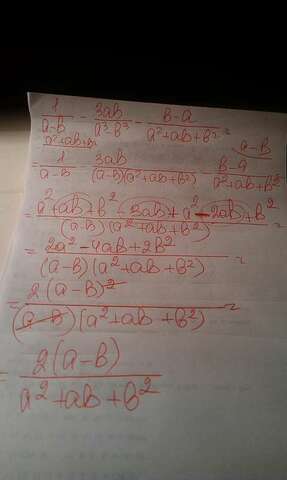 1/(a-b) - 3ab/(a³-b³) - (b-a)/(a²+ab+b²) =
a²+ab+b² a-b
= 1/(a-b) 3ab/((a-b)(a²+ab+b²)) (b-a)/(a²+ab+b²)
= (a²+ab+b² - 3ab + a² - 2ab + b²)/((a-b)(a²+ab+b²)) =
= (2a² - 4ab + 2b²)/((a-b)(a²+ab+b²)) =
= 2(a-b)²/((a-b)(a²+ab+b²)) =
= 2(a-b)/(a²+ab+b²)